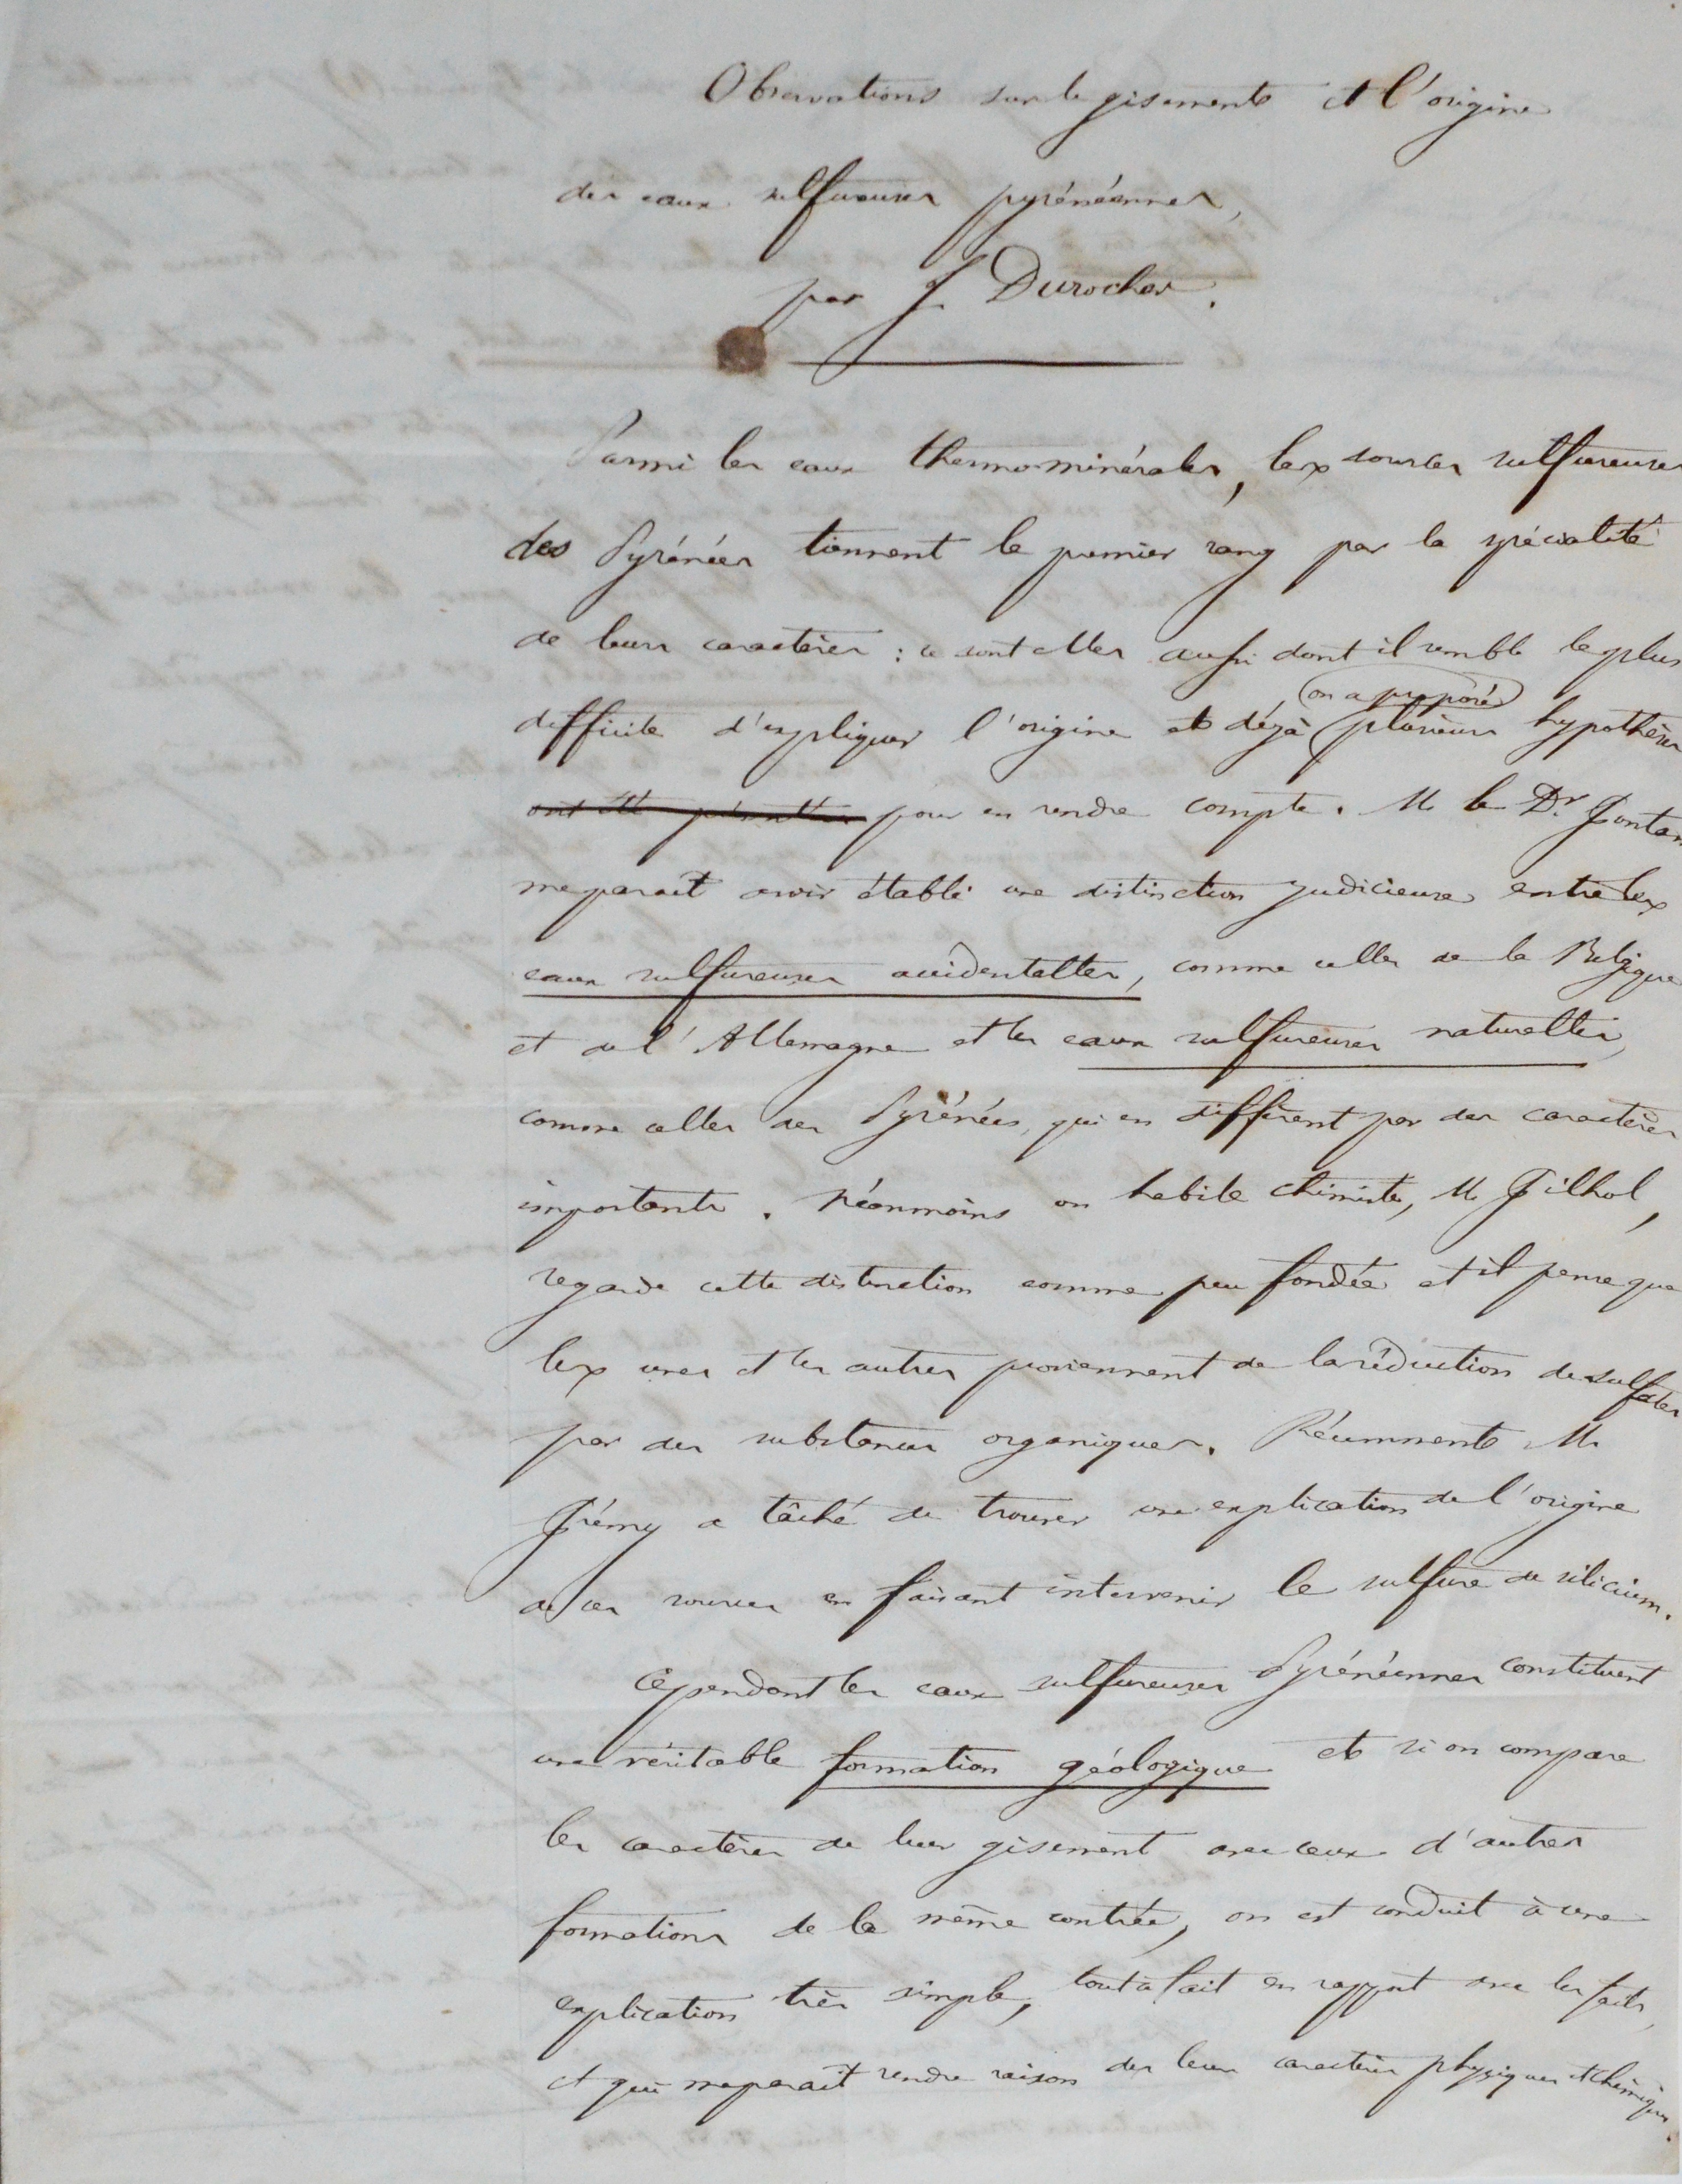 Observations sur le gisement et l'origine
des eaux sulfureuses pyrénéennes,
par J Durocher.
Parmi les eaux thermo-minérales, les sources sulfureuses
des Pyrénées tiennent le premier rang par la spécialité
de leurs caractères : ce sont elles aussi dont il semble le plus
on a proposé
difficile d'expliquer l'origine et déjà plusieurs hypothèses
pour en rendre compte. M le Dr. Fontan
me paraît avoir établi une distinction judicieuse entre les
eaux sulfureuses accidentelles, comme celles de la Belgique
et de l'Allemagne et les eaux sulfureuses naturelles,
comme celles des Pyrénées, qui en diffèrent par des caractères
importants. Néanmoins un habile chimiste, M Filhol,
regarde cette distinction comme peu fondée et il pense que
les unes et les autres proviennent de la réduction de sulfates
par des substances organiques. Récemment M
Frémy a tâché de trouver une explication de l'origine
de ces sources en faisant intervenir le sulfure de silicium.
Cependant les eaux sulfureuses Pyrénéennes constituent
une véritable formation géologique et si on compare
les caractères de leur gisement avec ceux d'autres
formations de la même contrée, on est conduit à une
explication très simple, tout à fait en rapport avec les faits,
et qui me paraît rendre raison des leurs caractères physiques et chimiques.